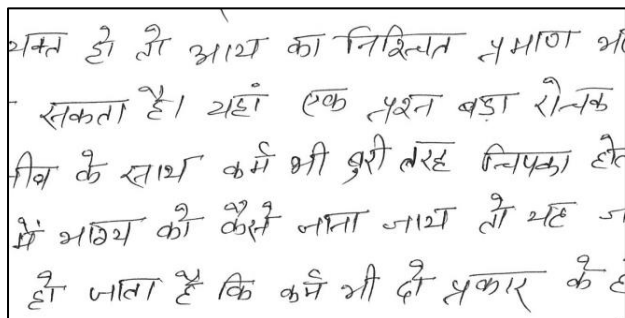 व्यक्त हो तो आय का निश्चित प्रमाण
सकता है। यहां एक प्रश्न बड़ा रोचक
जीव के साथ कर्म भी बुरी तरह चिपका
में भाग्य को कैसे जाना जाय तो यह
हो जाता है कि कर्म भी दो प्रकार के